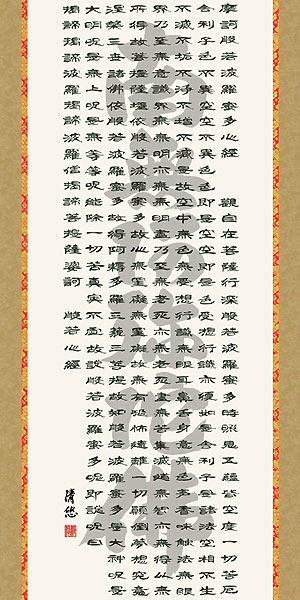 摩訶般若波羅蜜多心經　觀自在菩薩行深般若波羅蜜多時照見五蘊皆空度一切苦厄
舍利子色不異空空不異色色即是空空即是色受想行識亦復如是舍利子是諸法空相不生
不滅不垢不淨不增不減是故空中無色無受想行識無眼耳鼻舌身意無色聲香味觸法無眼界
乃至無意識界無無明亦無無明盡乃至無老死亦無老死盡無苦集滅道無智亦無得以無
所得故菩提薩埵依般若波羅蜜多故心無罣礙無罣礙故無有恐怖遠離一切顛倒夢想究竟
涅槃三世諸佛依般若波羅蜜多故得阿耨多羅三藐三菩提故知般若波羅蜜多是大神呪是
大明呪是無上呪是無等等呪能除一切苦真實不虛故說般若波羅蜜多呪即說呪曰
揭諦揭諦波羅揭諦波羅僧揭諦菩提薩婆訶　般若心經
清悠